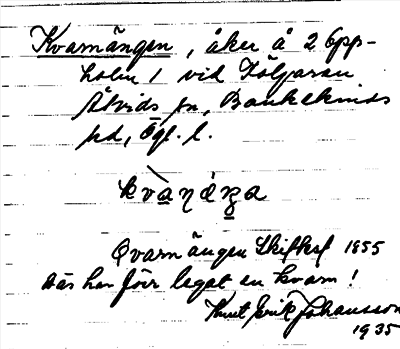 Kvarnängen, åker å 2 Epp-
holm 1 vid Följaran
Åtvids sn, Bankekinds
hd, Ögl. l.
kvàŋága
Qvarnängen Skifksf 1855
Här har förr legat en kvarn!
Knut Erik Johansson
1935